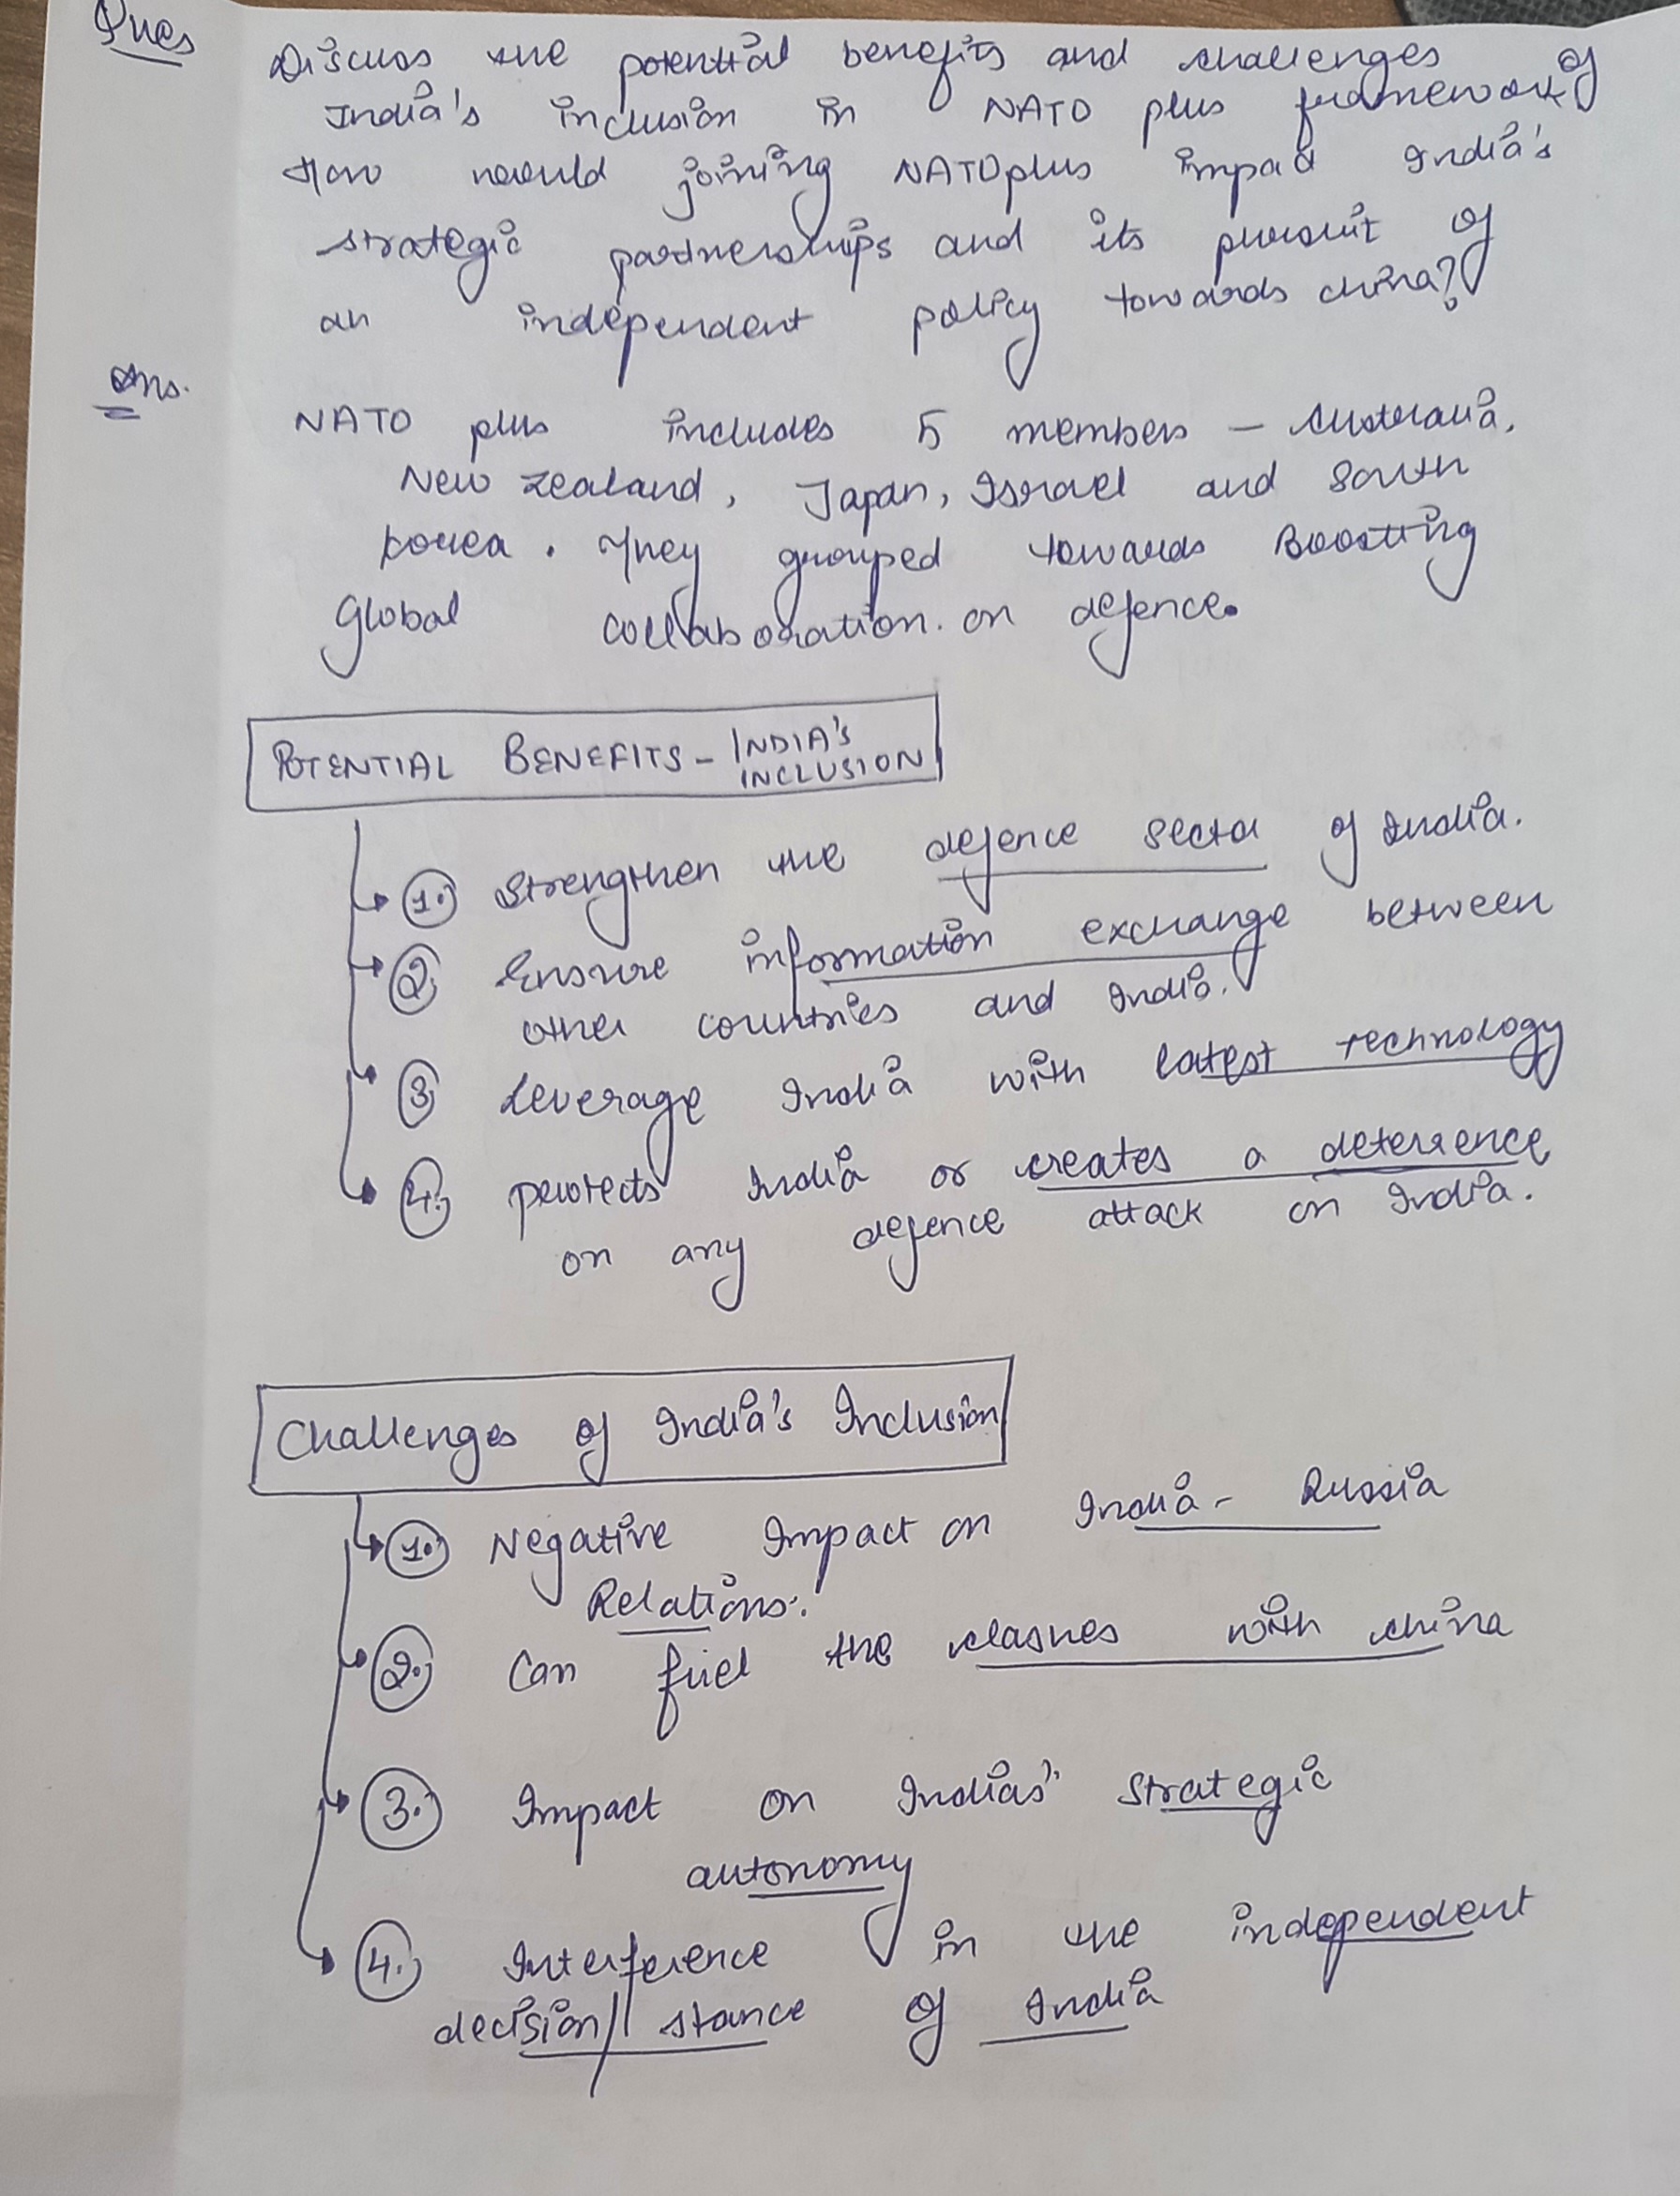 Ques
Discuss the potential benefits and challenges of
India's inclusion in NATO plus framework
How would joining NATO plus impact India's
strategic partnerships and its pursuit of
an independent policy towards china?
Ans.
NATO plus includes 5 members - Australia,
New Zealand, Japan, Israel and South
Korea. They grouped towards Boosting
Global collaboration. on defence.
POTENTIAL BENEFITS - INDIA'S
INCLUSION
1. Strengthen the defence sector of India.
2. Ensure information exchange between
other countries and India.
3. Leverage India with latest technology
4. protects India or creates a deterrence
on any defence attack on India.
Challenges of India's Inclusion
1. Negative Impact on India - Russia
Relations.
2. Can fuel the clashes with china
3. Impact on Indias' strategic
autonomy
4. Interference in the independent
decision/ stance of India